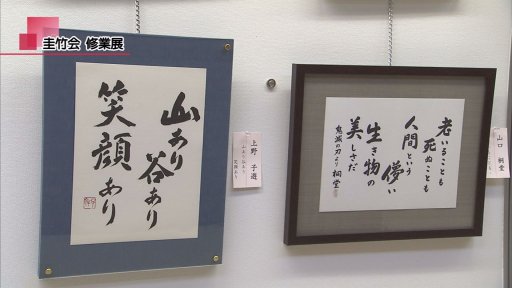 圭竹会 修業展
山あり
谷あり
笑顔あり
上野 子遊
山あり谷あり
笑顔あり
老いることも
死ぬことも
人間という
儚い
生き物の
美しさだ
鬼滅の刃より 桐堂
山口 桐堂